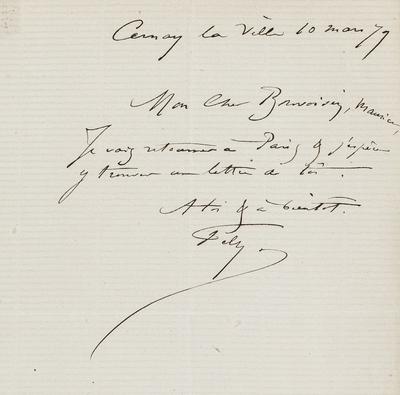 Cernay la Ville 10 mars 79
Mon Cher Maurice,
Je vais retourner à Paris & j'espère
y trouver une lettre de toi.
A toi & à bientôt.
Fély